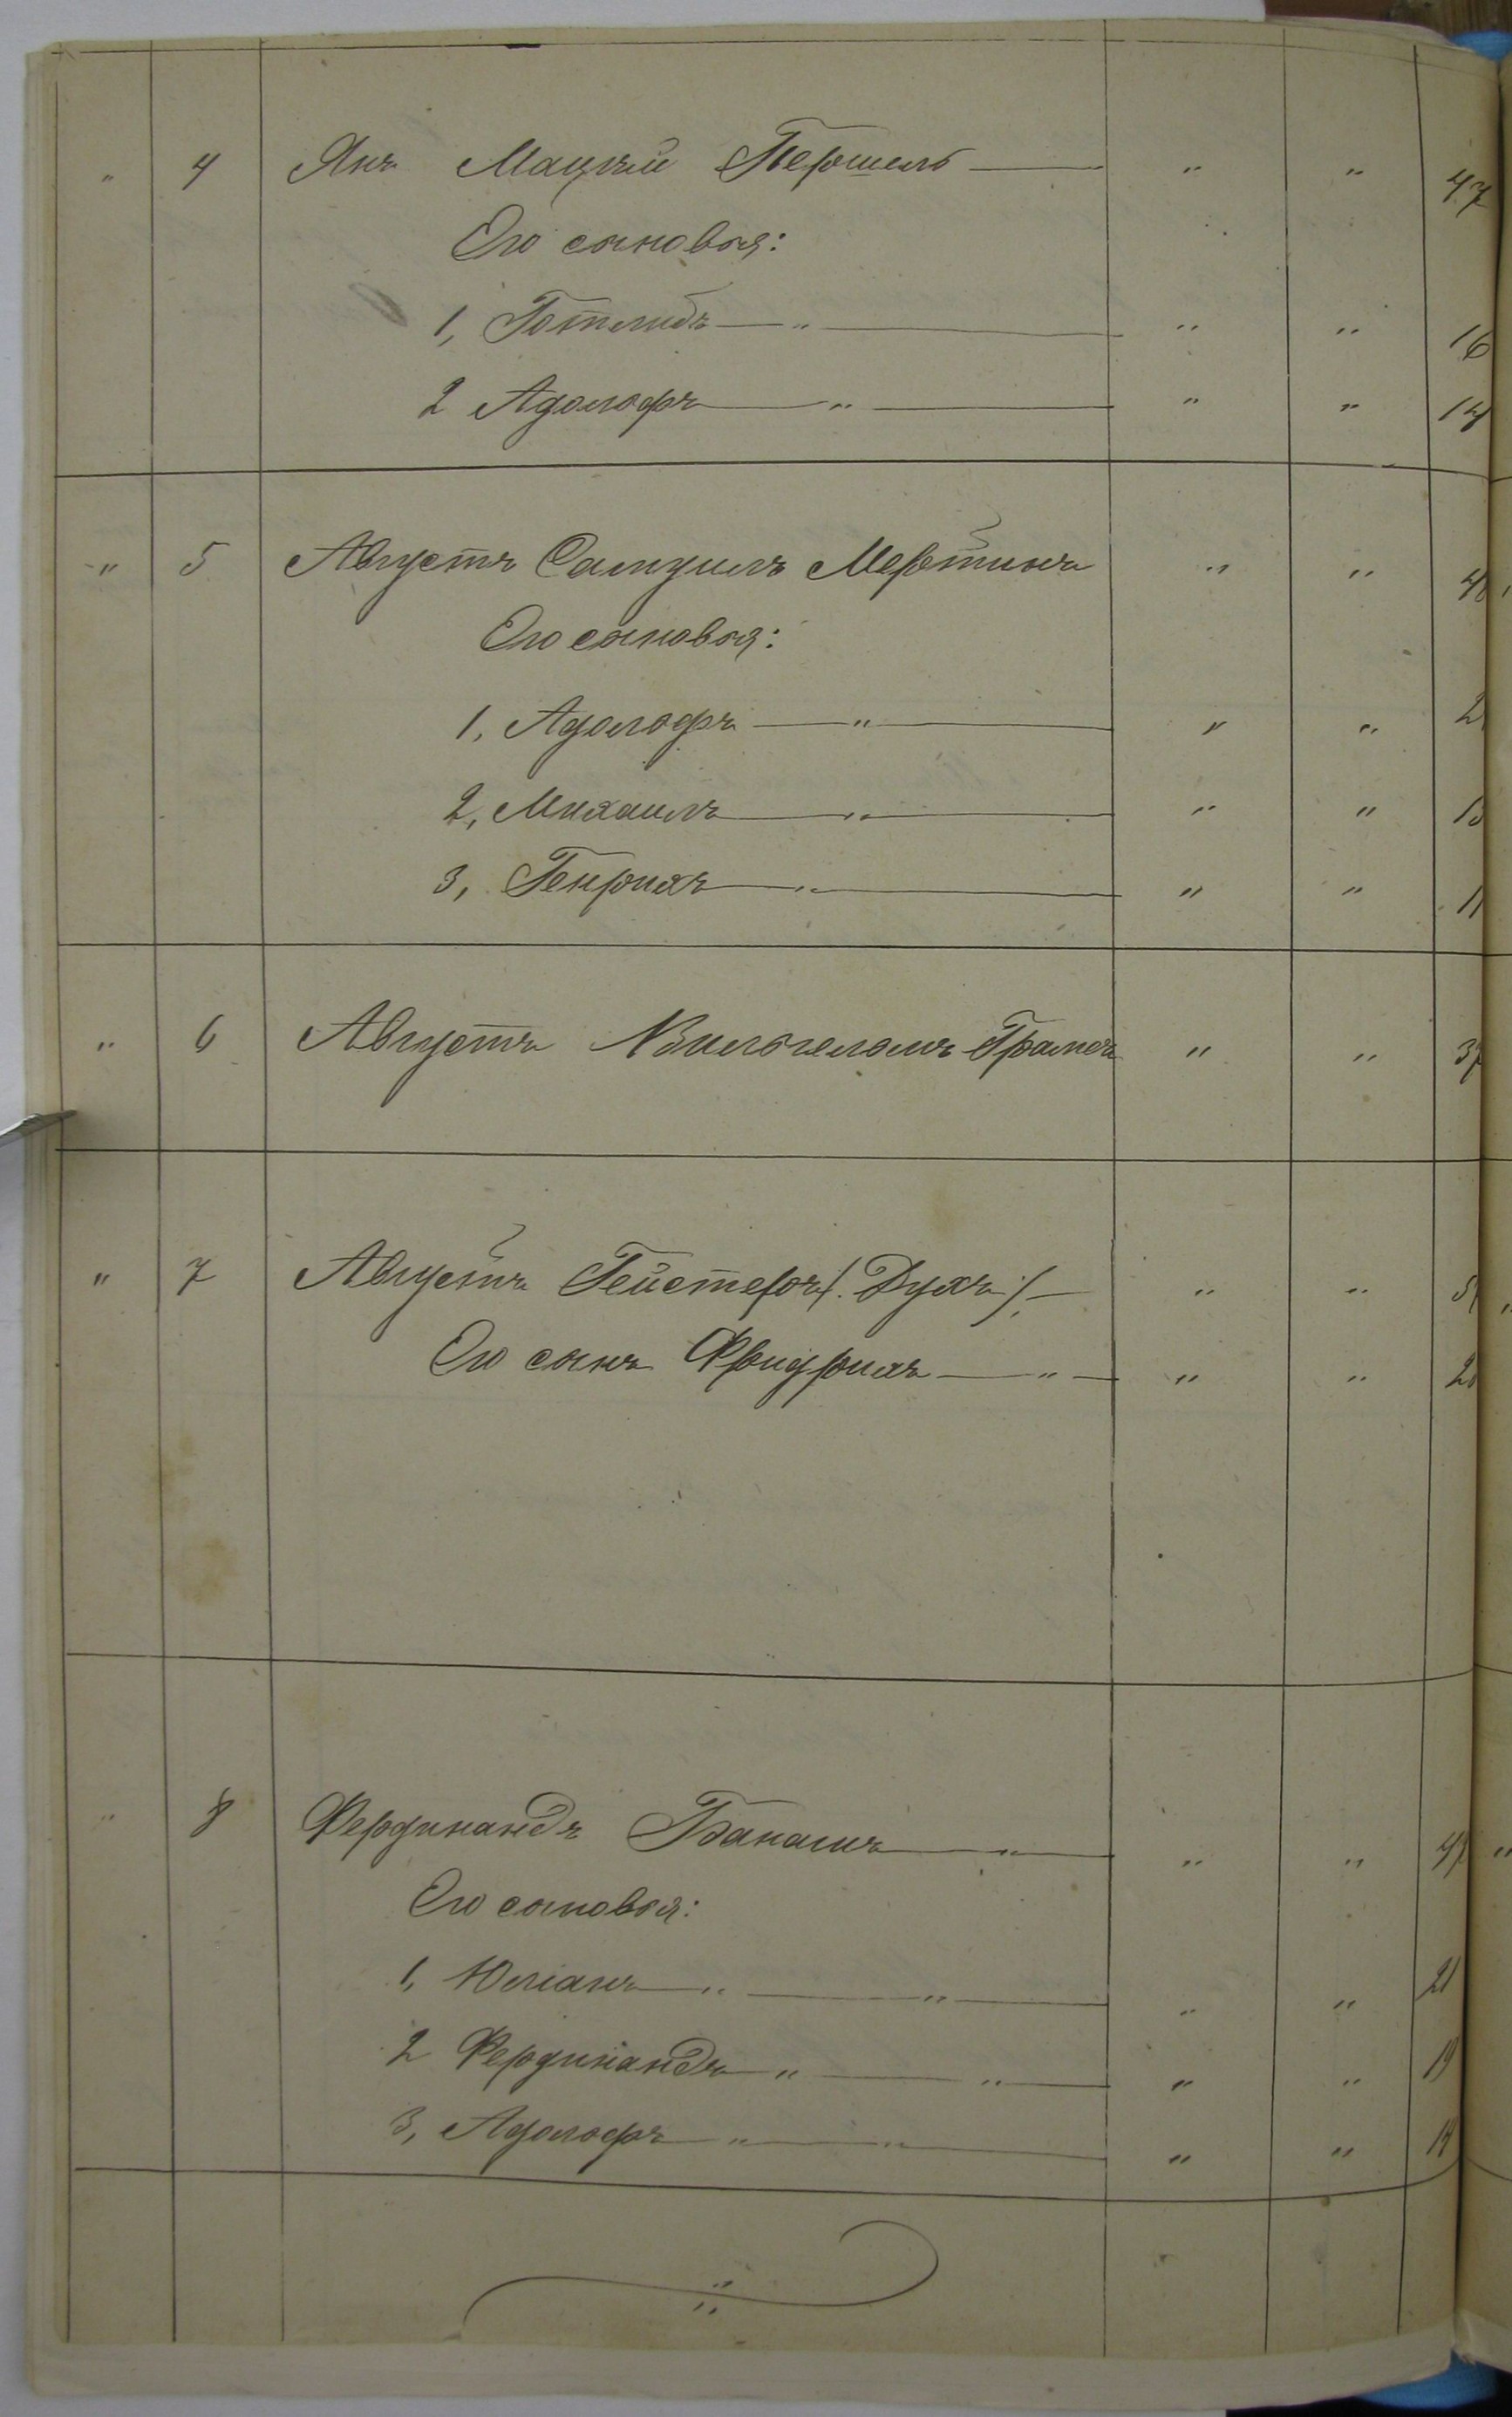 " 4 Янъ Мацѣй Першель — " " 47
Его сыновья:
1, Готлибъ — " — " " 16
2 Адольфъ — " — " " 14
" 5 Августъ Самуилъ Мертинъ " "
Его сыновья:
1, Адольфъ — " — " "
2, Михаилъ — " — " "
3, Генрихъ — " — " " 11
" 6 Августъ Вильгельмъ " "
" 7 Августъ Гейстеръ /. Духъ ./ — " "
Его сынъ Фридрихъ — " — " "
" 8 Фердинандъ — " — " "
Его сыновья:
1, Юліанъ — " — " — " " 21
2 Фердинандъ — " — " — " " 19
3, Адольфъ — " — " — " "